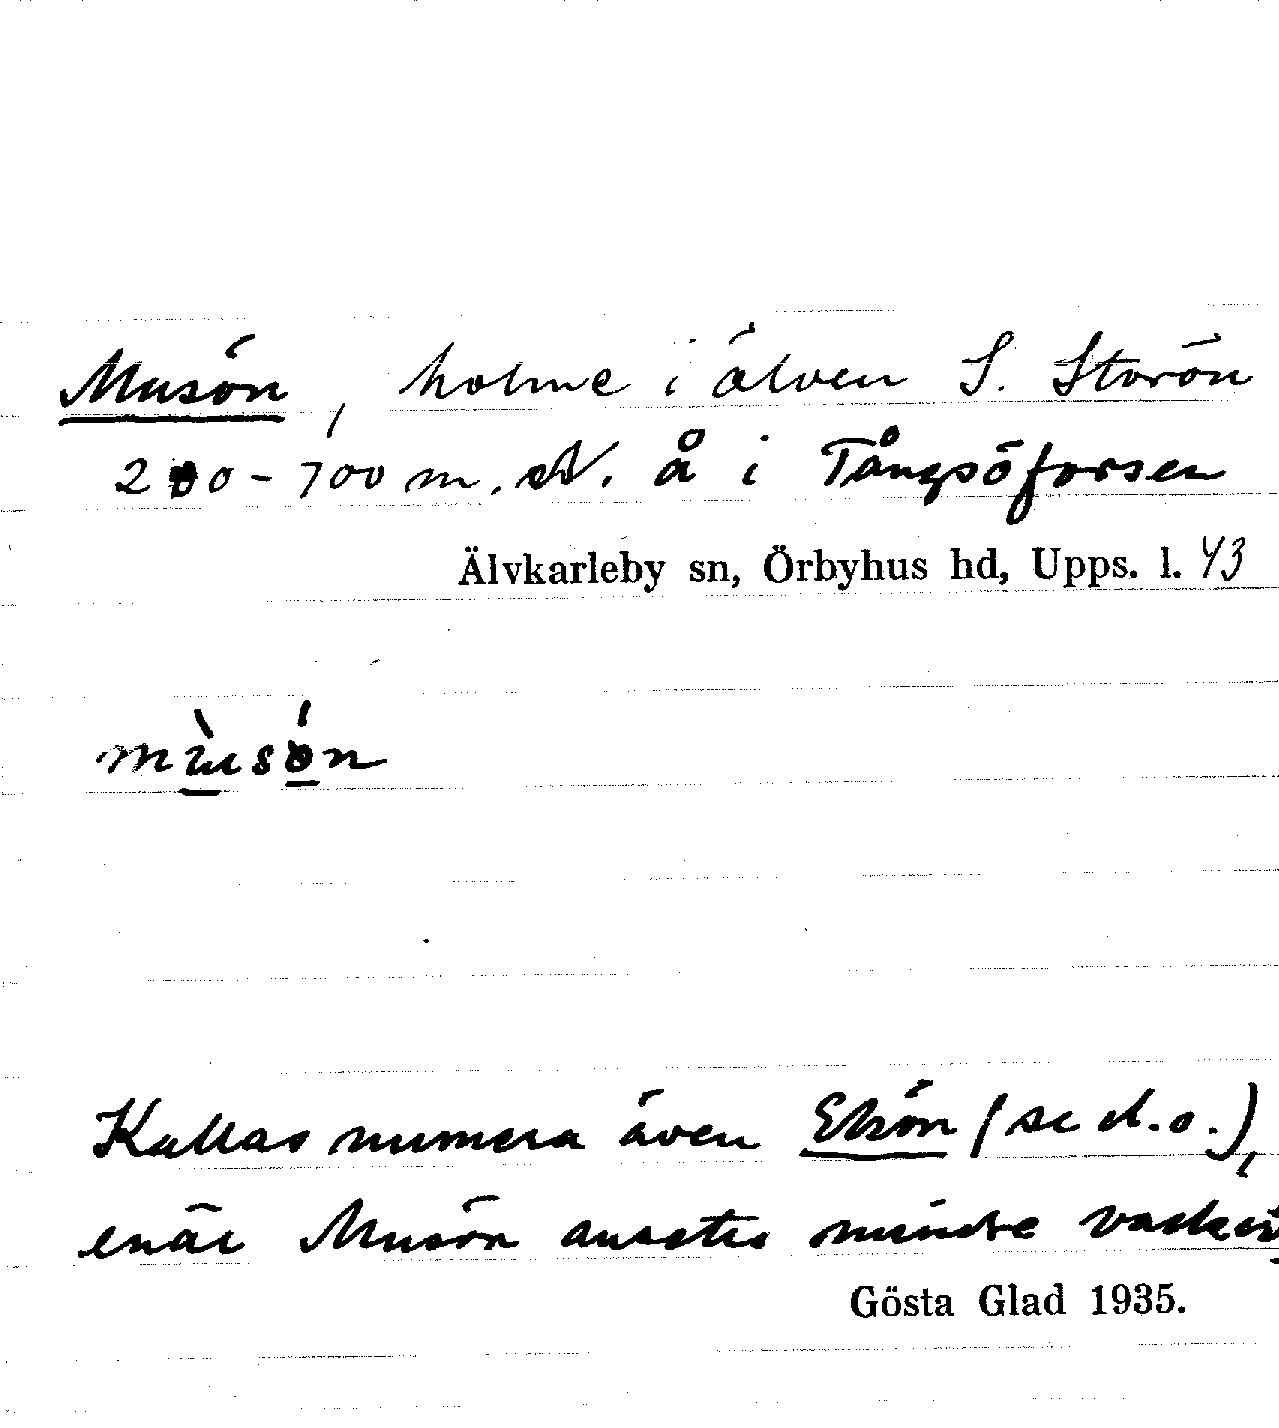 Musön, holme i älven S. Storön
200-700 m. N. å i Tångsöforsen
Älvkarleby sn, Örbyhus hd, Upps. l. 43
mùsǿn
Kallas numera även Ekön (se d.o.),
enär Musön ansetts mindre vacker
Gösta Glad 1935.